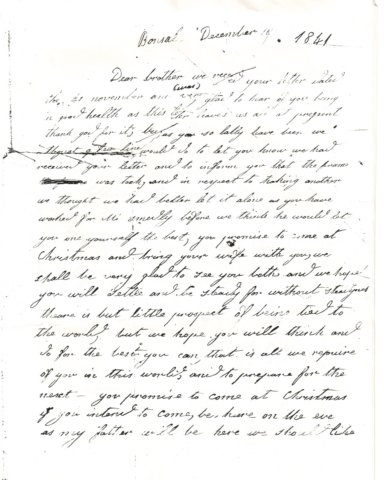 Bonsal December 19. 1841
Dear brother we received your letter dated
the 25 november and (was) very glad to hear of you being
in good health as this leaves us all at present
thank god for it, as you so lately have been we
thought a few lines would do to let you know we had
received your letter and to inform you that the
was took, and in respect to taking another
we thought we had better let it alone as you have
worked for Mr Smedly before we think he would let
you one yourself the best, you promise to come at
Christmas and bring your wife with you, we
shall be very glad to see you bothe and we hope
you will settle and be steady for without steadyness
theare is but little prospect of being to
the world, but we hope you will think and
do for the best you can, that is all we require
of you in this world, and to prepare for the
next - you promise to come at Christmas
if you intend to come, be here on the eve
as my father will be here we should like